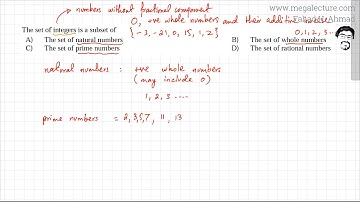 www.megalecture.com
numbers without fractional component
0, +ve whole numbers and their additive inverse
The set of integers is a subset of
{-3, -21, 0, 15, 1, 2}
0, 1, 2, 3 --
A) The set of natural numbers
B) The set of whole numbers
C) The set of prime numbers
D) The set of rational numbers
natural numbers : +ve whole numbers
(may include 0)
1, 2, 3 ----
prime numbers = 2, 3, 5, 7, 11, 13